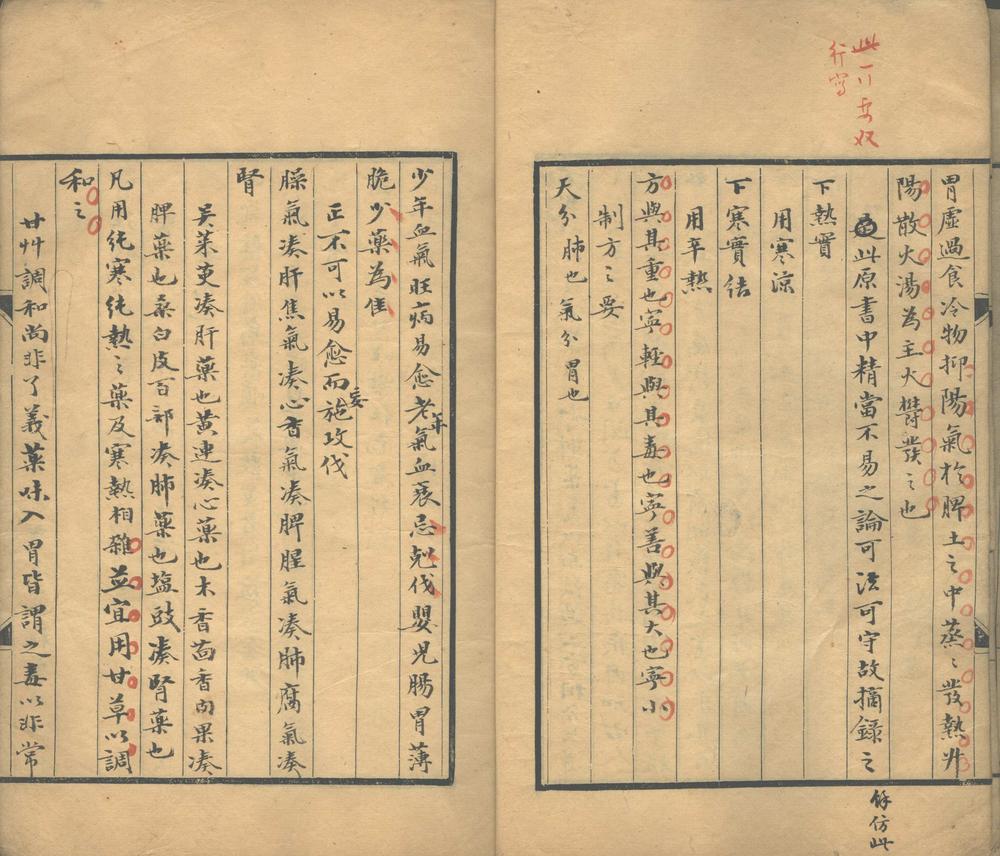 此一行要奴
行寫
胃虛過食冷物抑陽氣於脾土之中蒸〻發熱升
陽散火湯為主火欝發之也
此原書中精當不易之論可法可守故摘錄之
餘仿此
下熱實
用寒涼
下寒實結
用辛熱
方與其重也寧輕與其毒也寧善與其大也寧小
制方之要
天分肺也氣分胃也
少年血氣旺病易愈老年氣血衰忌尅伐嬰兒腸胃薄
脆少藥為佳
正不可以易愈而妄施攻伐
臊氣湊肝焦氣湊心香氣湊脾腥氣湊肺腐氣湊
腎
吳茱萸湊肝藥也黃連湊心藥也木香茴香肉果湊
脾藥也桑白皮百部湊肺藥也塩豉湊腎藥也
凡用純寒純熱之藥及寒熱相雜並宜用甘草以調
和之
甘艸調和尚非了義藥味入胃皆謂之毒以非常